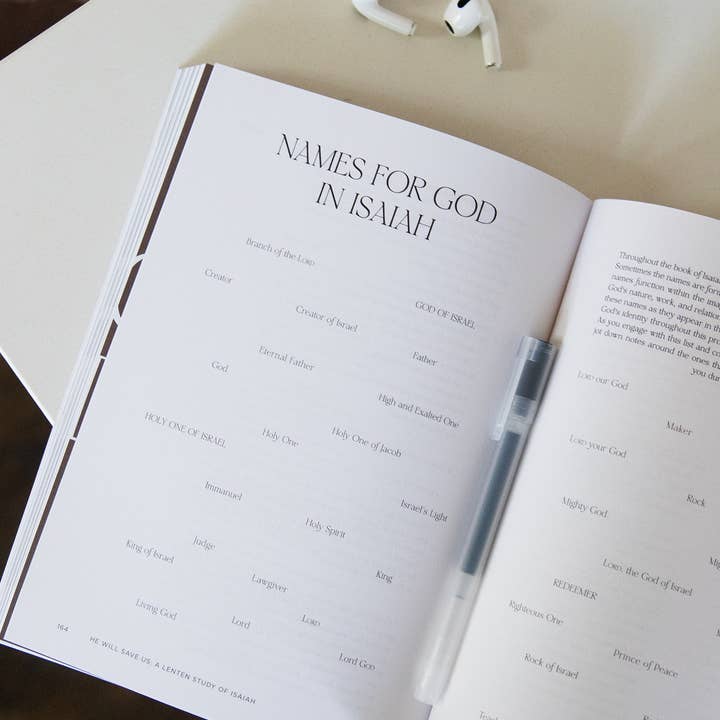 NAMES FOR GOD
IN ISAIAH
Branch of the LORD
Creator
GOD OF ISRAEL
Creator of Israel
Eternal Father
Father
God
High and Exalted One
HOLY ONE OF ISRAEL
Holy One
Holy One of Jacob
Immanuel
Israel's Light
Holy Spirit
Judge
King of Israel
King
Lawgiver
Living God
Lord
LORD
Lord GOD
164
HE WILL SAVE US: A LENTEN STUDY OF ISAIAH
Throughout the book of
Sometimes the names are
names function within the
God's nature, work, and
these names as they appear in the
God's identity throughout this
As you engage with this list and
jot down notes around the ones
you
LORD our God
Maker
LORD your God
Rock
Mighty God
LORD, the God of Israel
REDEEMER
Righteous One
Prince of Peace
Rock of Israel